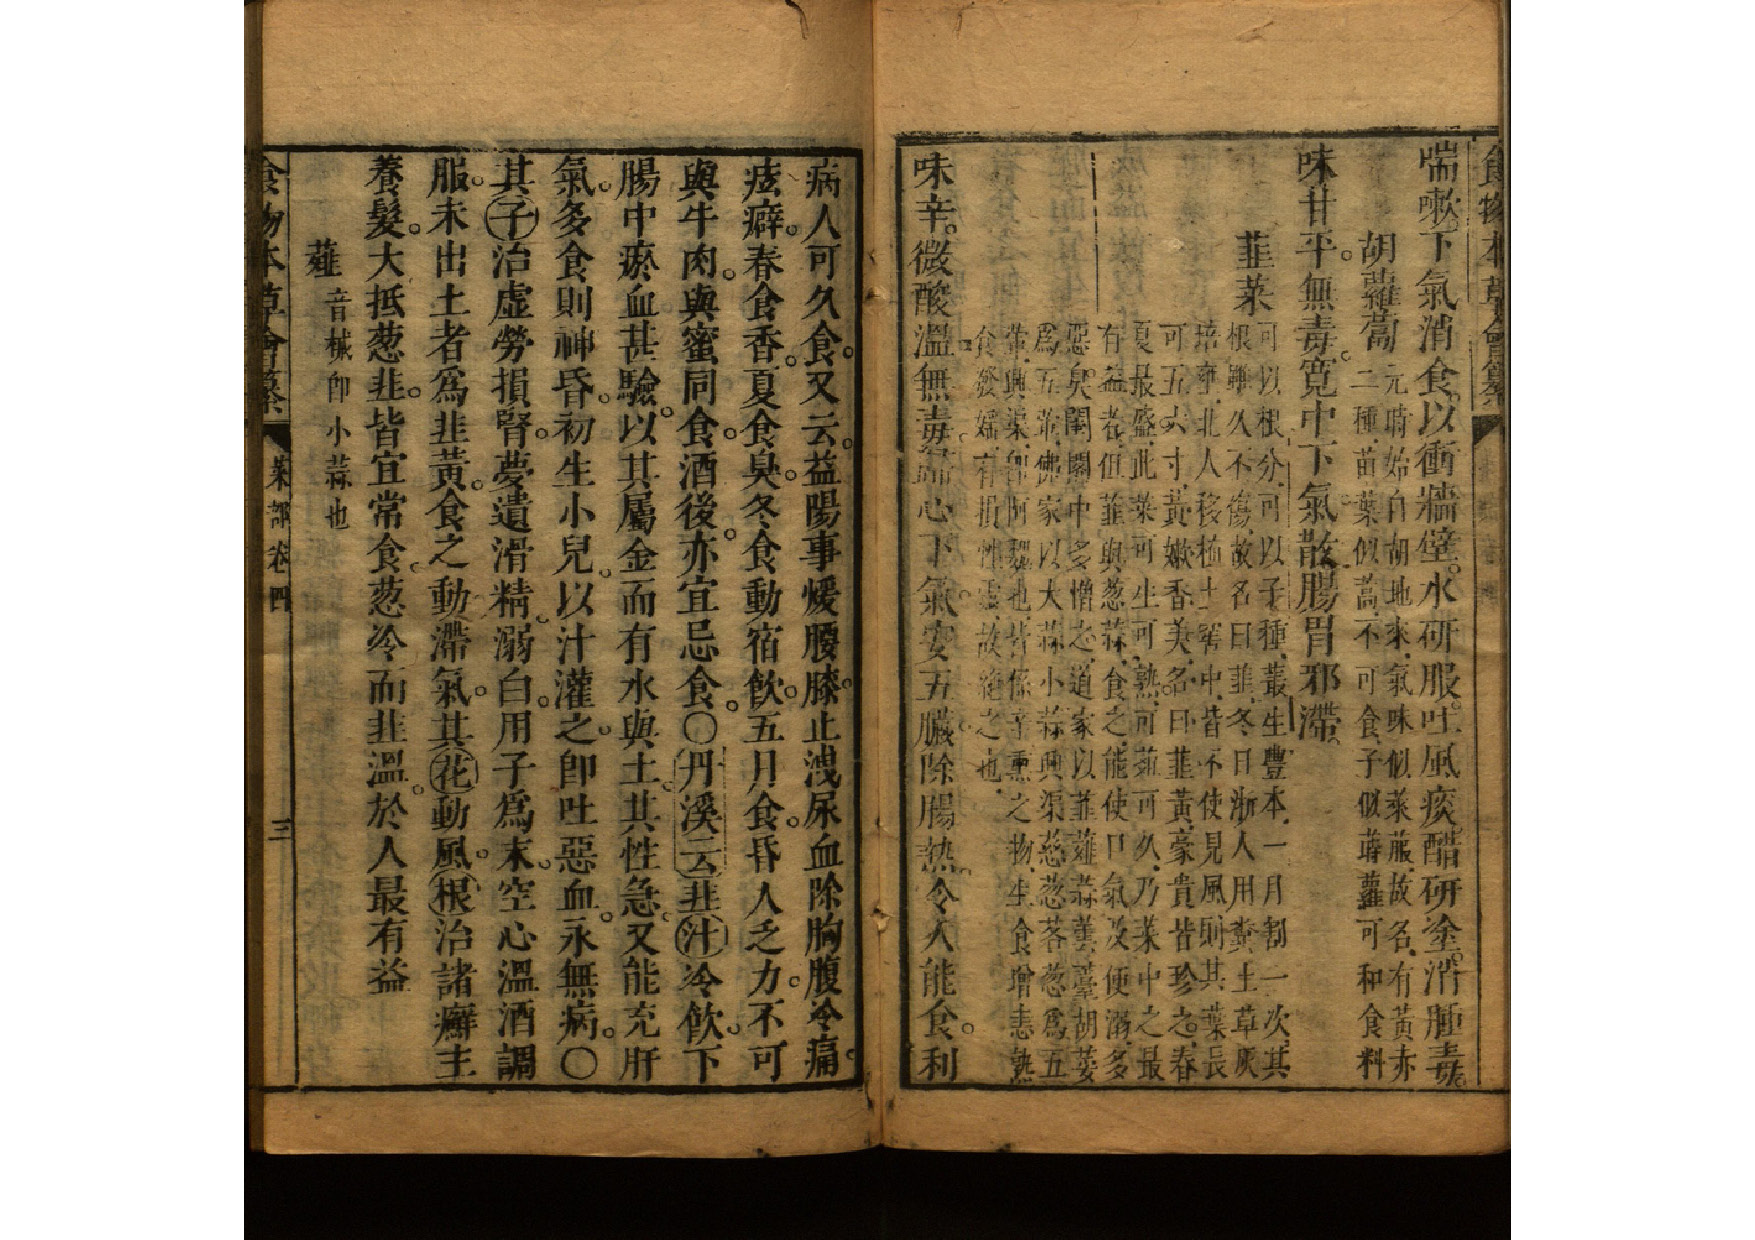 食物本草會纂
喘嗽。下氣消食。以衝牆壁。水研服。吐風痰。醋研塗。消腫毒。
胡蘿蔔
元時始自胡地來。氣味似萊菔。故名。有黃赤
二種。苗葉似蒿。不可食。子似蒔蘿。可和食料
味甘平。無毒。寬中下氣。散腸胃邪滯。
韮菜
可以根分。可以子種。叢生豐本。一月割一次。其
根雖久不傷。故名曰韮。冬日浙人用糞土草灰
培壅。北人移植土窖中。皆不使見風。則其葉長
可五六寸。黃嫩香美。名曰韮黃。豪貴皆珍之。春
夏最盛。此菜可生可熟。可葅可久。乃菜中之最
有益者。但韮與葱蒜。食之能使口氣及便溺。多
惡臭。閨閣中多憎之。道家以韮薤蒜蕓薹胡荽
為五葷。佛家以大蒜小蒜興渠慈葱茖葱為五
葷。興渠即阿魏也。皆係辛熏之物。生食增恚。熟
食發婬。有損性靈。故絕之也。
味辛。微酸溫。無毒。歸心下氣。安五臟。除腸熱。令人能食。利
病人可久食。又云。益陽事。煖腰膝。止洩尿血。除胸腹冷痛。
痃癖。春食香。夏食臭。冬食動宿飲。五月食。昏人乏力。不可
與牛肉。與蜜同食。酒後。亦宜忌食。〇丹溪云韭汁冷飲。下
腸中瘀血甚驗。以其屬金而有水與土。其性急。又能充肝
氣。多食則神昏。初生小兒。以汁灌之。即吐惡血。永無病。〇
其子治虛勞損腎。夢遺滑精。溺白。用子為末。空心溫酒調
服。未出土者為韭黃。食之動滯氣。其花動風。根治諸癬。主
養髮。大抵葱韭。皆宜常食。葱冷而韭溫。於人最有益
薤
音械即小蒜也
食物本草會纂 菜部卷四 三